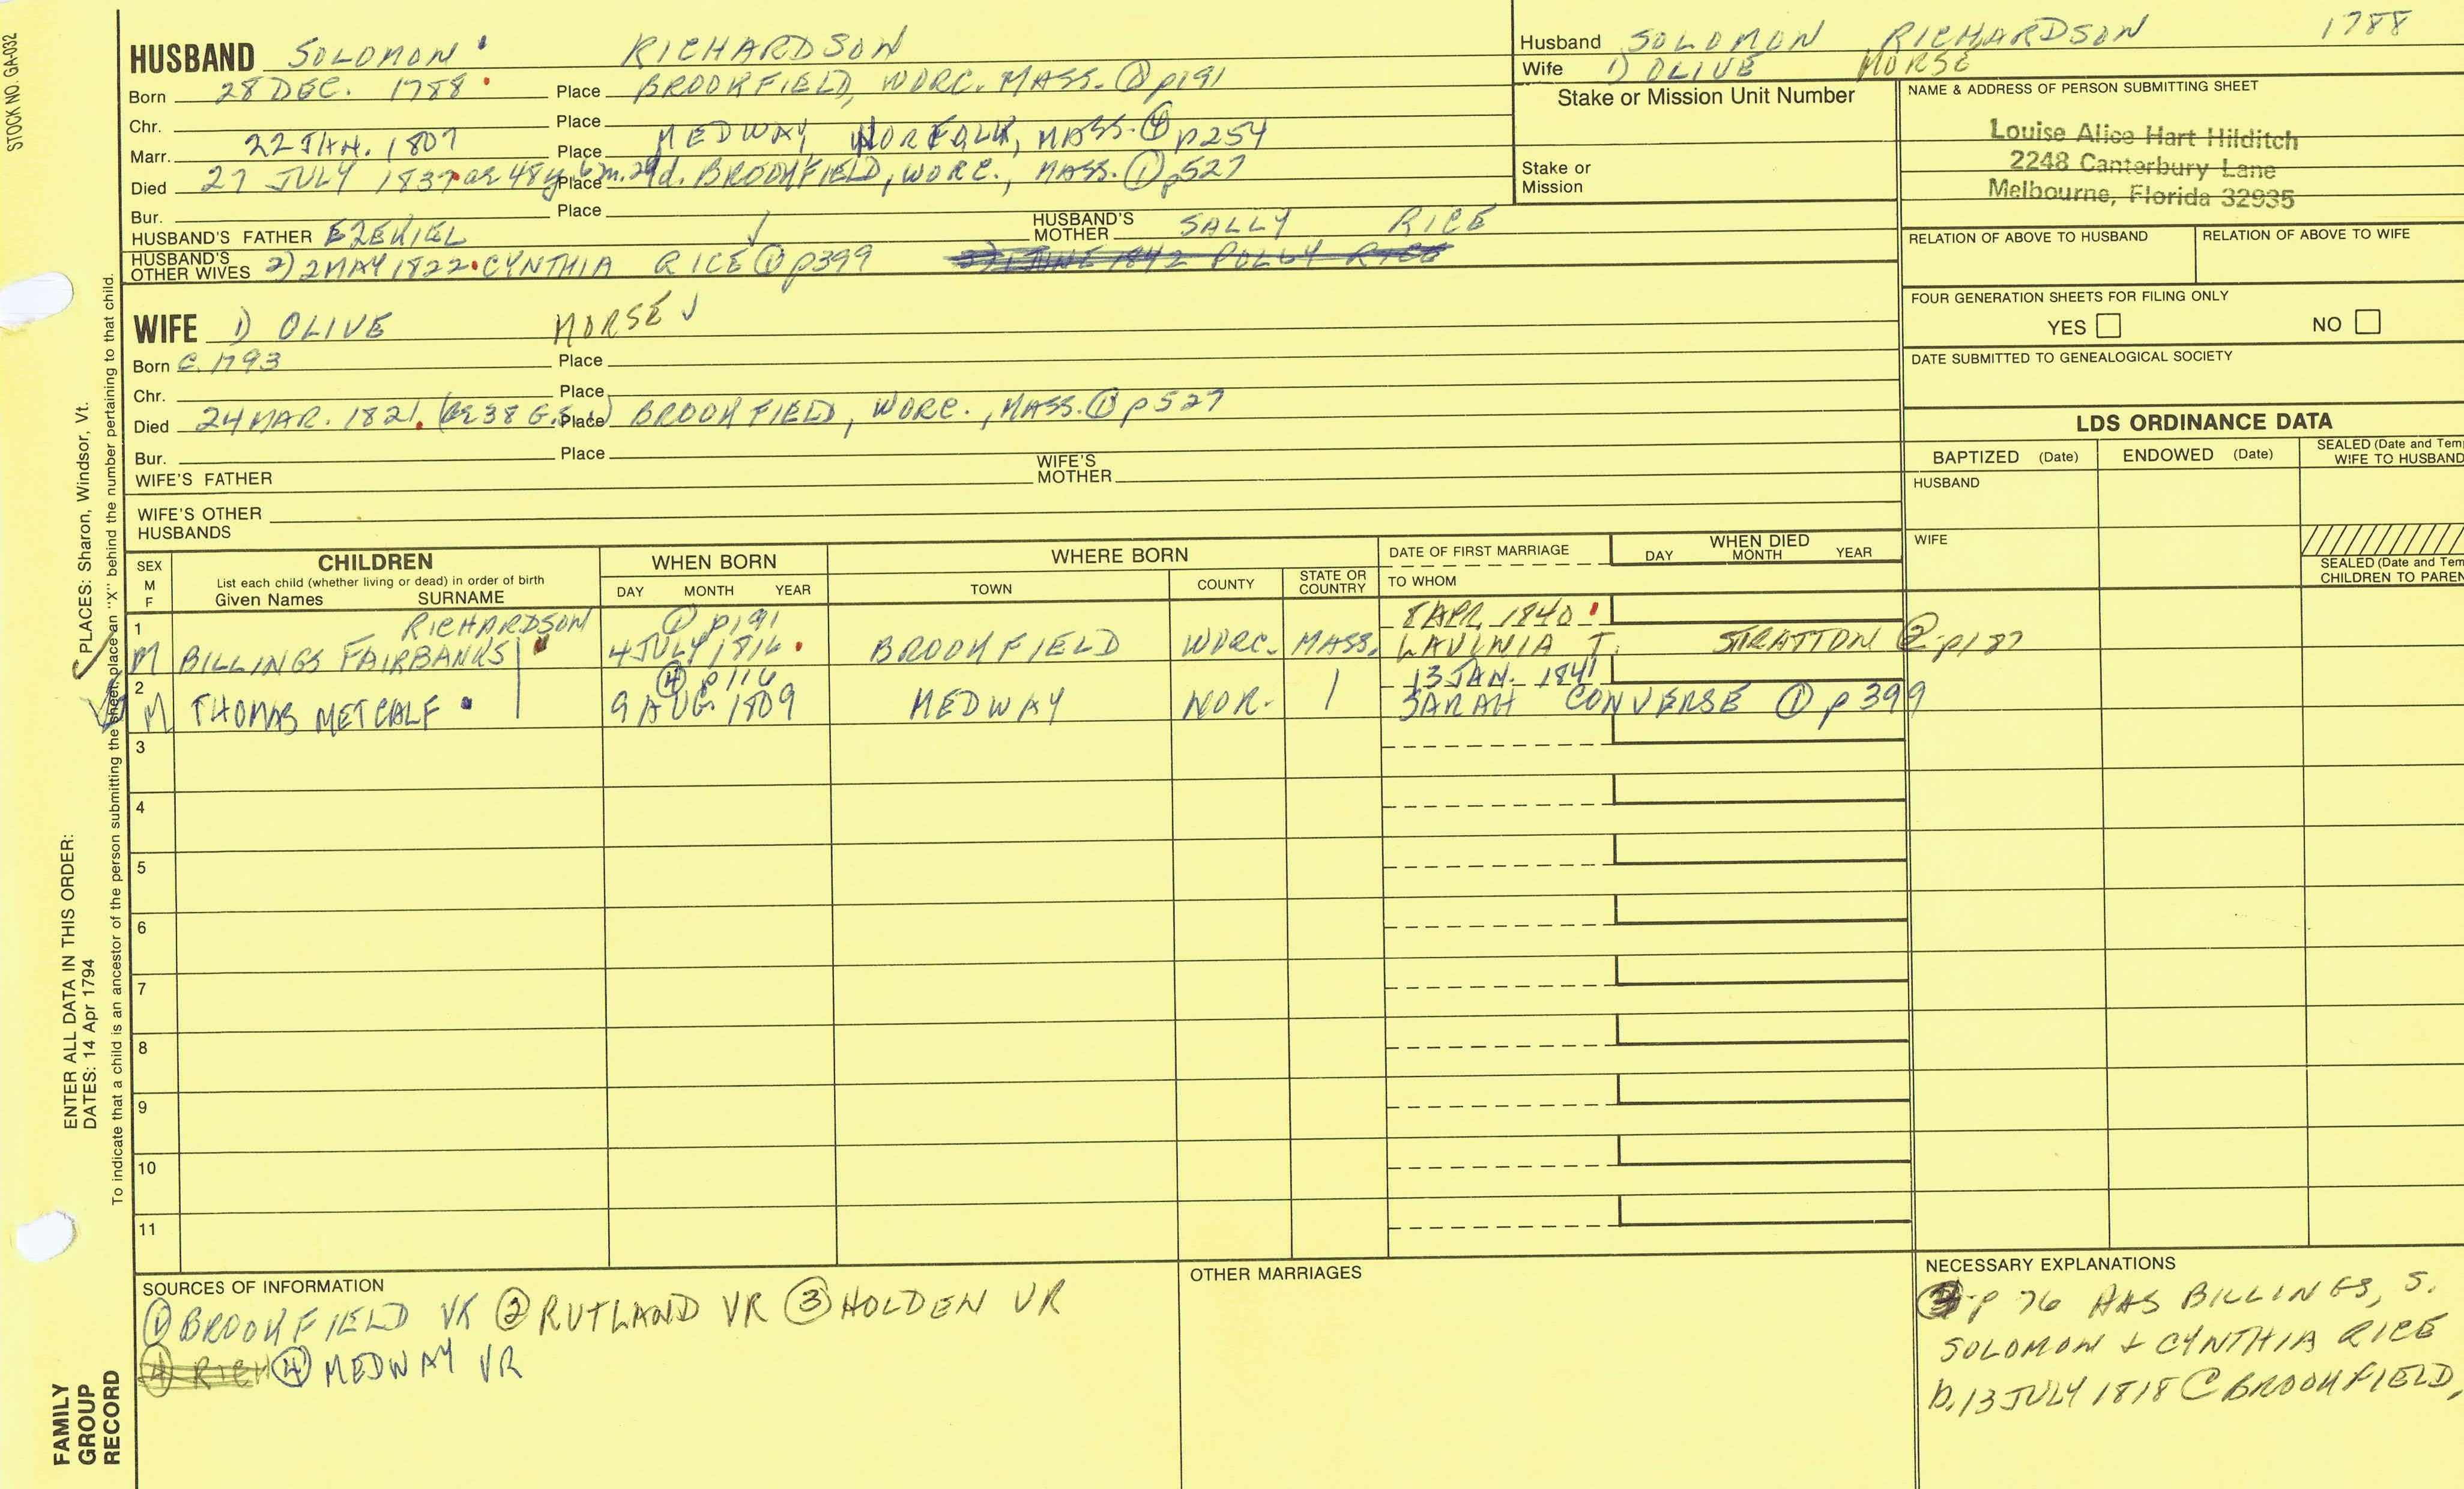 STOCK NO. GA-032
HUSBAND SOLOMON RICHARDSON
Born 28 DEC. 1788 Place BROOKFIELD, WORC. MASS. ① p191
Chr. Place
Marr. 22 JAN. 1807 Place MEDWAY, NORFOLK, MASS. ④ p254
Died 27 JULY 1837 ae 48y 6m. 29d. Place BROOKFIELD, WORC., MASS. ① p527
Bur. Place
HUSBAND'S FATHER EZEKIEL HUSBAND'S MOTHER SALLY RICE
HUSBAND'S OTHER WIVES 2) 2 MAY 1822 CYNTHIA RICE ① p399 3) 1 JUNE 1842 POLLY RICE
WIFE 1) OLIVE MORSE
Born C. 1793 Place
Chr. Place
Died 24 MAR. 1821. (ae 38 G.S.1) Place BROOKFIELD, WORC., MASS. ① p527
Bur. Place
WIFE'S FATHER WIFE'S MOTHER
WIFE'S OTHER HUSBANDS
Husband SOLOMON RICHARDSON 1788
Wife 1) OLIVE MORSE
Stake or Mission Unit Number
Stake or Mission
NAME & ADDRESS OF PERSON SUBMITTING SHEET
Louise Alice Hart Hilditch
2248 Canterbury Lane
Melbourne, Florida 32935
RELATION OF ABOVE TO HUSBAND RELATION OF ABOVE TO WIFE
FOUR GENERATION SHEETS FOR FILING ONLY
YES NO
DATE SUBMITTED TO GENEALOGICAL SOCIETY
LDS ORDINANCE DATA
BAPTIZED (Date) ENDOWED (Date) SEALED (Date and Tem WIFE TO HUSBAND
HUSBAND
WIFE
SEALED (Date and Tem CHILDREN TO PAREN
SEX M F
CHILDREN
List each child (whether living or dead) in order of birth
Given Names SURNAME
WHEN BORN
DAY MONTH YEAR
WHERE BORN
TOWN COUNTY STATE OR COUNTRY
DATE OF FIRST MARRIAGE
TO WHOM
WHEN DIED
DAY MONTH YEAR
1 RICHARDSON ① p191 8 APR. 1840
M BILLINGS FAIRBANKS 4 JULY 1816 BROOKFIELD WORC. MASS. LAVINIA T. STRATTON ② p187
2 ④ p116 13 JAN. 1841
M THOMAS METCALF 9 AUG. 1809 MEDWAY NOR. SARAH CONVERSE ① p399
3
4
5
6
7
8
9
10
11
SOURCES OF INFORMATION
① BROOKFIELD VR ② RUTLAND VR ③ HOLDEN VR
④ RICH ④ MEDWAY VR
OTHER MARRIAGES
NECESSARY EXPLANATIONS
③ - p 76 HAS BILLINGS, S.
SOLOMON + CYNTHIA RICE
b. 13 JULY 1818 @ BROOKFIELD,
ENTER ALL DATA IN THIS ORDER:
DATES: 14 Apr 1794 PLACES: Sharon, Windsor, Vt.
To indicate that a child is an ancestor of the person submitting the sheet, place an "X" behind the number pertaining to that child.
FAMILY
GROUP
RECORD